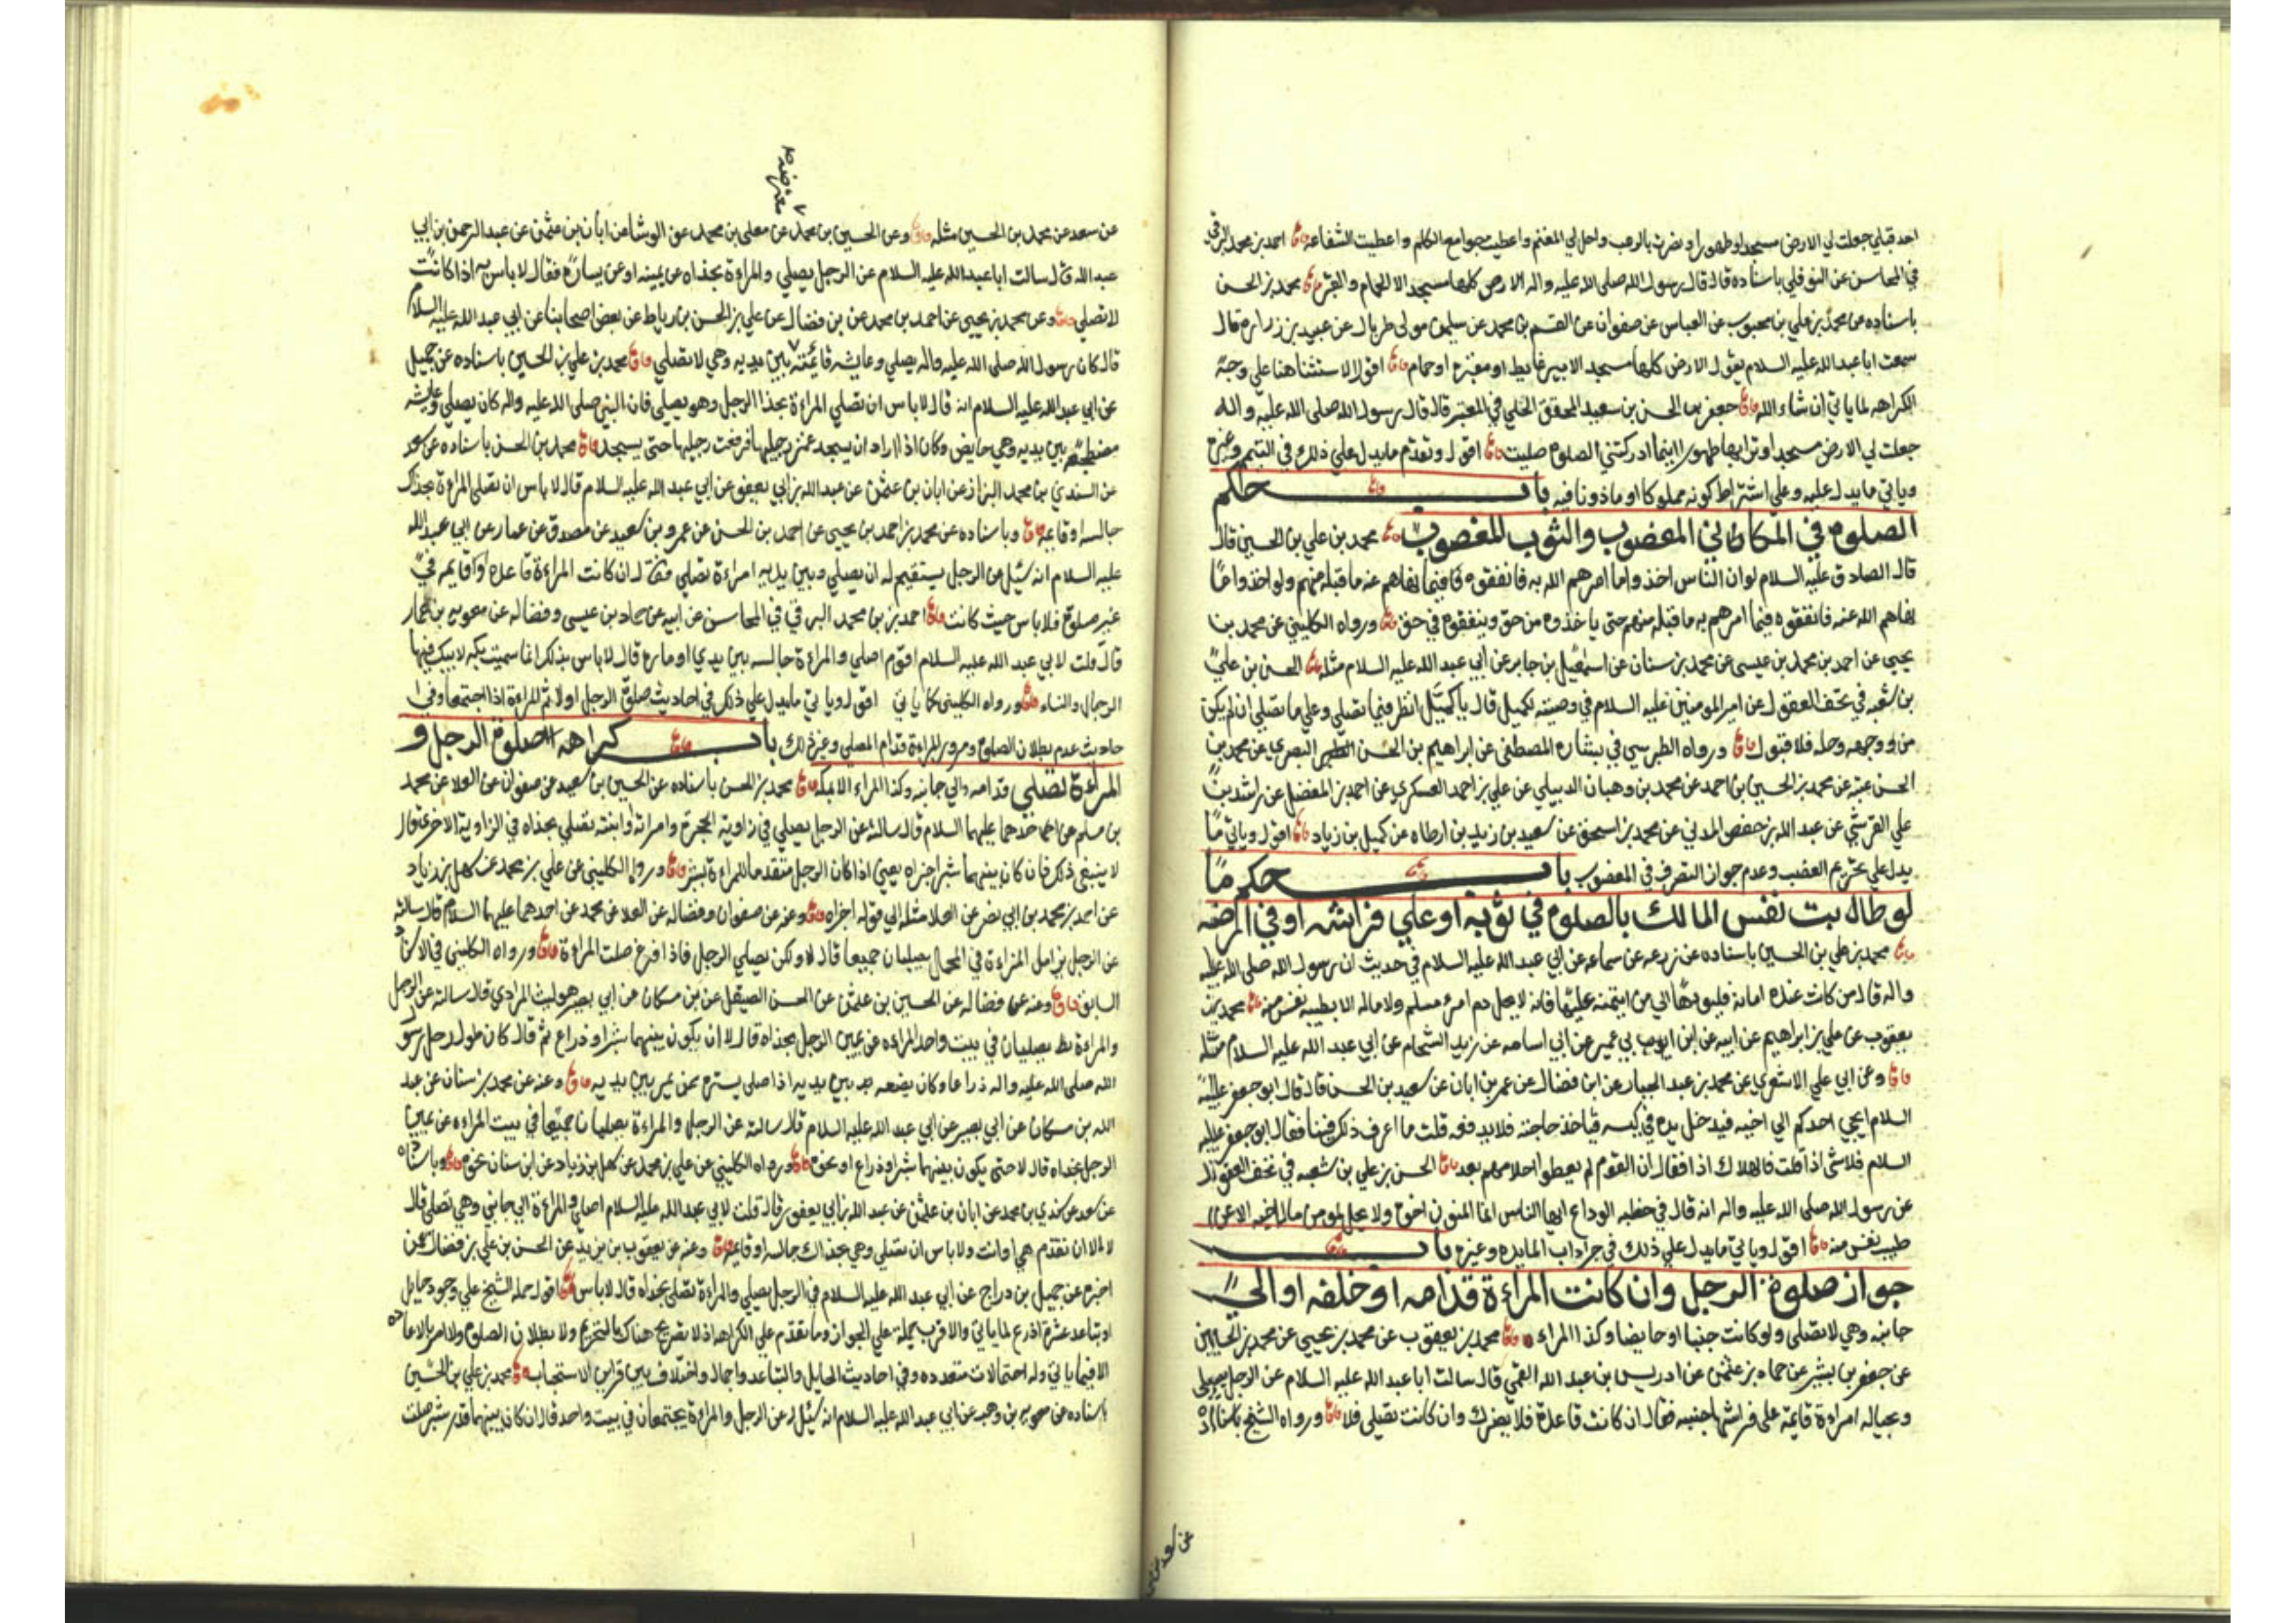 احد قبلي جعلت لي الارض مسجدا وطهورا ونصرت بالرعب واحل لي المغنم واعطيت جوامع الكلم واعطيت الشفاعه احمد بن محمد البرقي
في المحاسن عن النوفلي باسناده قال قال رسول الله صلى الله عليه واله الارض كلها مسجد الا الحمام والقبر محمد بن الحسن
باسناده عن محمد بن علي بن محبوب عن العباس عن صفوان عن القسم بن محمد عن سليمن مولى طربال عن عبيد بن زراره قال
سمعت ابا عبد الله عليه السلام يقول الارض كلها مسجد الا بير غايط او مقبره او حمام اقول الاستثنا هنا علي وجه
الكراهه لما ياتي ان شاء الله جعفر بن الحسن بن سعيد المحقق الحلي في المعتبر قال قال رسول الله صلى الله عليه واله
جعلت لي الارض مسجدا وترابها طهورا اينما ادركتني الصلوه صليت اقول وتقدم مايدل علي ذلك في التيمم وغيره
وياتي مايدل عليه وعلي اشتراط كونه مملوكا او ماذونا فيه باب حكم
الصلوه في المكان المغصوب والثوب المغصوب محمد بن علي بن الحسين قال
قال الصادق عليه السلام لو ان الناس اخذوا ما امرهم الله به فانفقوه فيما نهاهم عنه ما قبله منهم ولو اخذوا ما
نهاهم الله عنه فانفقوه فيما امرهم به ما قبله منهم حتى ياخذوه من حق وينفقوه في حق ورواه الكليني عن محمد بن
يحيي عن احمد بن محمد بن عيسى عن محمد بن سنان عن اسمعيل بن جابر عن ابي عبد الله عليه السلام مثله الحسن بن علي
بن شعبه في تحف العقول عن امير المومنين عليه السلام في وصيته لكميل قال يا كميل انظر فيما تصلي وعلي ما تصلي ان لم يكن
من وجهه وحله فلا قبول ورواه الطبرسي في بشارة المصطفى عن ابراهيم بن الحسن البصري عن محمد بن
الحسن عتبه عن محمد بن الحسين بن احمد عن محمد بن وهبان الدبيلي عن علي بن احمد العسكري عن احمد بن المفضل عن راشد بن
علي القرشي عن عبد الله بن حفص المدني عن محمد بن اسحق عن سعيد بن زيد بن ارطاه عن كميل بن زياد اقول وياتي ما
يدل علي تحريم الغصب وعدم جواز التصرف في المغصوب باب حكم ما
لو طابت نفس المالك بالصلوه في ثوبه او علي فراشه او في ارضه
محمد بن علي بن الحسين باسناده عن زرعه عن سماعه عن ابي عبد الله عليه السلام في حديث ان رسول الله صلى الله عليه
واله قال من كانت عنده امانه فليودها الي من ايتمنه عليها فانه لا يحل دم امرئ مسلم ولا ماله الا بطيبه نفس منه محمد بن
يعقوب عن علي بن ابراهيم عن ابيه عن ابن ابي عمير عن ابي اسامه عن زيد الشحام عن ابي عبد الله عليه السلام مثله
وعن ابي علي الاشعري عن محمد بن عبد الجبار عن ابن فضال عن عمر بن ابان عن سعيد بن الحسن قال قال ابو جعفر عليه
السلام ايجي احدكم الي اخيه فيدخل يده في كيسه فياخذ حاجته فلا يدفعه قلت ما اعرف ذلك فينا فقال ابو جعفر عليه
السلام فلا شي اذا قلت فالهلاك اذا فقال ان القوم لم يعطوا احلامهم بعد الحسن بن علي بن شعبه في تحف العقول
عن رسول الله صلى الله عليه واله انه قال في خطبه الوداع ايها الناس انما المومنون اخوه ولا يحل لمومن مال اخيه الا عن
طيب نفس منه اقول وياتي مايدل علي ذلك في اداب المايده وغيره باب
جواز صلوة الرجل وان كانت المراءة قدامه او خلفه او الي
جانبه وهي لا تصلى ولو كانت جنبا او حايضا وكذا المراء محمد بن يعقوب عن محمد بن يحيي عن محمد بن الحسين
عن جعفر بن بشير عن حماد بن عثمن عن ادريس بن عبد الله القمي قال سالت ابا عبد الله عليه السلام عن الرجل يصلي
وبحياله امراءة قايمة على فراشها جنبه فقال ان كانت قاعدة فلا يضرك وان كانت تصلي فلا ورواه الشيخ باسناده
عن سعد عن
معترضه
عن سعد عن محمد بن الحسين مثله وعن الحسين بن محمد عن معلى بن محمد عن الوشا عن ابان بن عثمن عن عبد الرحمن بن ابي
عبد الله قال سالت ابا عبد الله عليه السلام عن الرجل يصلي والمراءة بحذاه عن يمينه او عن يساره فقال لا باس به اذا كانت
لا تصلي وعن محمد بن يحيى عن احمد بن محمد عن بن فضال عن علي بن الحسن بن رباط عن بعض اصحابنا عن ابي عبد الله عليه السلام
قال كان رسول الله صلى الله عليه واله يصلي وعايشه قائمة بين يديه وهي لا تصلي محمد بن علي بن الحسين باسناده عن جميل
عن ابي عبد الله عليه السلام انه قال لا باس ان تصلي المراءة بحذا الرجل وهو يصلي فان النبي صلى الله عليه واله كان يصلي وعايشه
مضطجعه بين يديه وهي حايض وكان اذا اراد ان يسجد غمز رجليها فرفعت رجليها حتى يسجد محمد بن الحسن باسناده عن سعد
عن السندي بن محمد البزاز عن ابان بن عثمن عن عبد الله بن ابي يعفور عن ابي عبد الله عليه السلام قال لا باس ان تصلي المراءة بحذاك
جالسه او قايمه وباسناده عن محمد بن احمد بن يحيى عن احمد بن الحسن عن عمرو بن سعيد عن مصدق عن عمار عن ابي عبد الله
عليه السلام انه سئل عن الرجل يستقيم له ان يصلي وبين يديه امراءة تصلي فقال ان كانت المراءة قاعده او قايمه في
غير صلوة فلا باس حيث كانت احمد بن محمد البرقي في المحاسن عن ابيه عن حماد بن عيسى وفضاله عن معويه بن عمار
قال قلت لابي عبد الله عليه السلام اقوم اصلي والمراءة جالسه بين يدي او ماره قال لا باس بذلك انما سميت بكه لانه يبك فيها
الرجال والنساء ورواه الكليني كما ياتي اقول وياتي مايدل علي ذلك في احاديث صلوة الرجل اولا ثم المراءة اذا اجتمعا وفي ا
حاديث عدم بطلان الصلوه بمرور المراءة قدام المصلي وغير ذلك باب كراهه صلوة الرجل و
المراءة تصلي قدامه والي جانبه وكذا المراء الا بمكه محمد بن الحسن باسناده عن الحسين بن سعيد عن صفوان عن العلا عن محمد
بن مسلم عن احدهما عليهما السلام قال سالته عن الرجل يصلي في زاوية الحجرة وامراته او ابنته تصلي بحذاه في الزاوية الاخرى قال
لا ينبغي ذلك فان كان بينهما شبر اجزاه يعني اذا كان الرجل متقدما للمراءة بشبر ورواه الكليني عن علي بن محمد عن سهل بن زياد
عن احمد بن محمد بن ابي نصر عن العلا مثله الي قوله اجزاه وعنه عن صفوان وفضاله عن العلا عن محمد عن احدهما عليهما السلام قال سالته
عن الرجل يزامل المراءة في المحمل يصليان جميعا قال لا ولكن يصلي الرجل فاذا فرغ صلت المراءة ورواه الكليني في الاسناد
السابق وعنه عن فضاله عن الحسين بن عثمن عن الحسن الصيقل عن بن مسكان عن ابي بصير هو ليث المرادي قال سالته عن الرجل
والمراءة يصليان في بيت واحد المراءه عن يمين الرجل بحذاه قال لا الا ان يكون بينهما شبر او ذراع ثم قال كان طول رحل رسول
الله صلى الله عليه واله ذراعا وكان يضعه بين يديه اذا صلى يستره ممن يمر بين يديه وعنه عن محمد بن سنان عن عبد
الله بن مسكان عن ابي بصير عن ابي عبد الله عليه السلام قال سالته عن الرجل والمراءة يصليان جميعا في بيت المراءه عن يمين
الرجل بحذاه قال لا حتى يكون بينهما شبر او ذراع او نحوه ورواه الكليني عن علي بن محمد عن سهل بن زياد عن ابن سنان نحوه وباسناده
عن سعد عن سندي بن محمد عن ابان بن عثمن عن عبد الله بن ابي يعفور قال قلت لابي عبد الله عليه السلام اصلي والمراءة الي جانبي وهي تصلي قال
لا الا ان تقدم هي او انت ولا باس ان تصلي وهي بحذاك جالسه او قايمه وعنه عن يعقوب بن يزيد عن الحسن بن علي بن فضال عمن
اخبره عن جميل بن دراج عن ابي عبد الله عليه السلام في الرجل يصلي والمراءة تصلي بحذاه قال لا باس اقول حمله الشيخ علي وجود حايل
او تباعد عشرة اذرع لما ياتي والاقرب حمله علي الجواز وما تقدم علي الكراهه اذ لا تصريح هناك بالتحريم ولا بطلان الصلوه ولا امر بالاعاده
الا فيما ياتي وله احتمالات متعدده وفي احاديث الحايل والتباعد واجمال واختلاف بين قراين الاستحباب محمد بن علي بن الحسين
باسناده عن معويه بن وهب عن ابي عبد الله عليه السلام انه سئل عن الرجل والمراءة يجتمعان في بيت واحد قال ان كان بينهما قدر شبر صلت